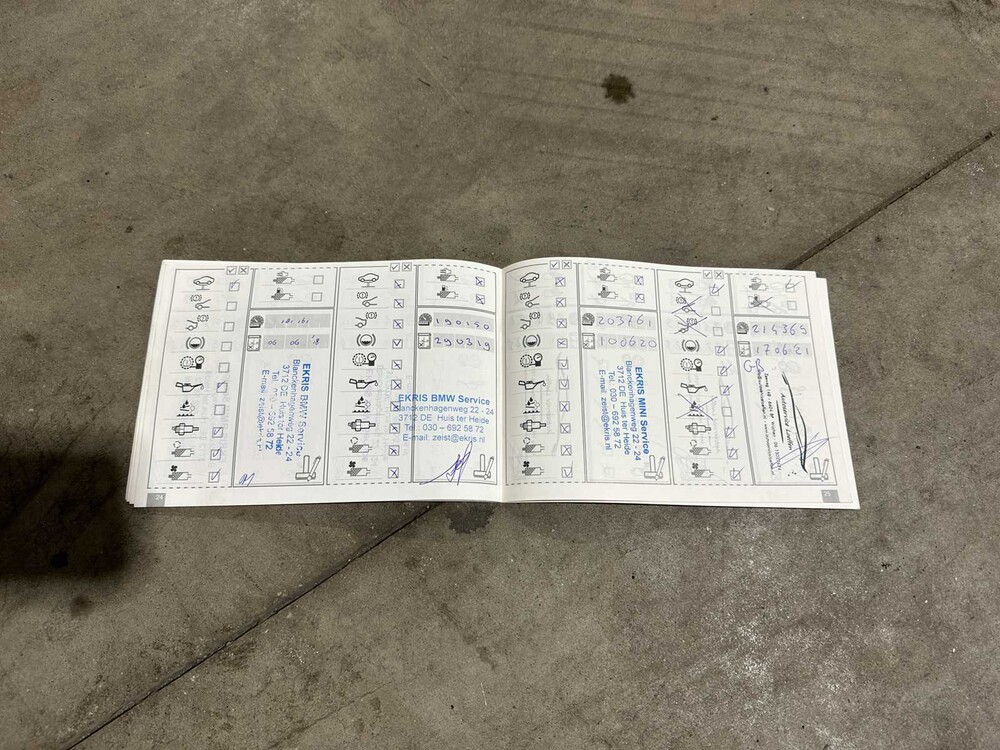 181 161
06 06 18
EKRIS BMW Service
Blanckenhagenweg 22 - 24
3712 DE Huis ter Heide
Tel. 030 - 692 58 72
E-mail: zeist@ekris.nl
24
190150
290319
EKRIS BMW Service
Blanckenhagenweg 22 - 24
3712 DE Huis ter Heide
Tel. 030 – 692 58 72
E-mail: zeist@ekris.nl
203761
100620
EKRIS MINI Service
Blanckenhagenweg 22 - 24
3712 DE Huis ter Heide
Tel. 030 - 692 58 72
E-mail: zeist@ekris.nl
214365
170621
Autoservice
25